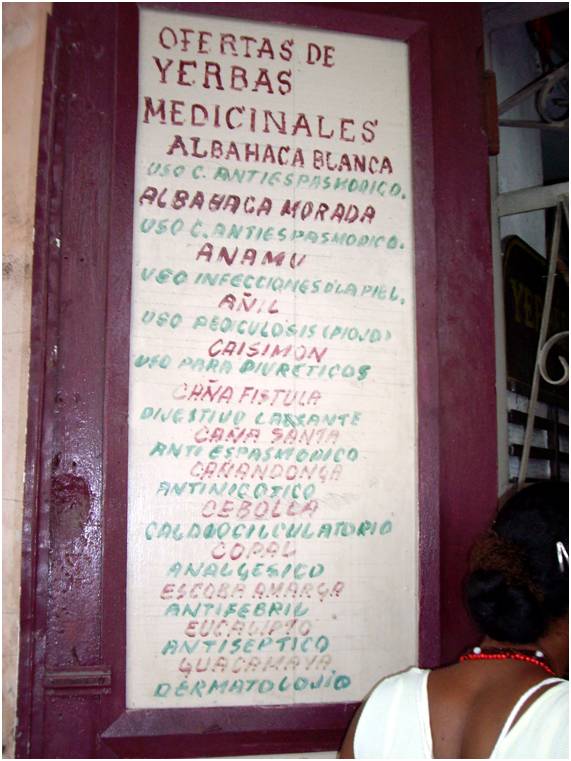 OFERTAS DE
YERBAS
MEDICINALES
ALBAHACA BLANCA
USO C. ANTIESPASMODICO.
ALBAHACA MORADA
USO C. ANTIESPASMODICO.
ANAMU
USO INFECCIONES D LA PIEL.
AÑIL
USO PEDICULOSIS (PIOJO)
CAISIMON
USO PARA DIURETICOS
CAÑA FISTULA
DIJESTIVO LAXSANTE
CAÑA SANTA
ANTI ESPASMODICO
CAÑANDONGA
ANTINICOTICO
CEBOLLA
COPAL
ANALGESICO
ESCOBA AMARGA
ANTIFEBRIL
EUCALIPTO
ANTISEPTICO
GUACAMAYA
DERMATOLOJIO
YER